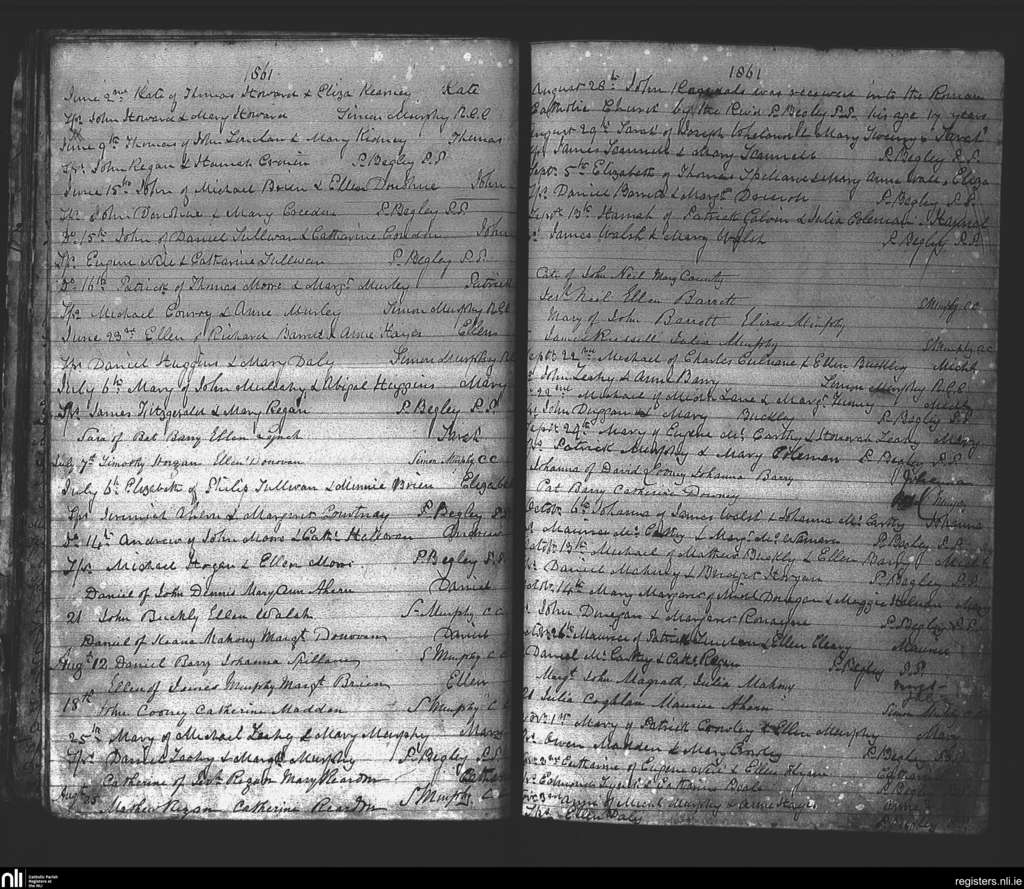 1861
June 2nd Kate of Thomas Howard & Eliza Kearney Kate
Sprs John Howard & Mary Howard Simon Murphy R.C.C
June 9th Thomas of John & Mary Kidney Thomas
Sprs John Regan & Hannah Cronin P. Begley P.P.
June 15th John of Michael Brien & Ellen Donohue John
Sprs John Donohue & Mary P. Begley P.P.
Do 15th John of Daniel Sullivan & Catharine Condon John
Sprs Eugene & Catharine Sullivan P. Begley P.P.
Do 16th Patrick of Thomas Moore & Margt Murley Patrick
Sprs Michael Conroy & Anne Murley Simon Murphy R.C.C
June 23rd Ellen of Richard Barrett & Anne Hayes Ellen
Sprs Daniel Huggins & Mary Daly Simon Murphy
July 6th Mary of John Mulcahy & Abigal Huggins Mary
Sprs James Fitzgerald & Mary Regan P. Begley P.P.
Sara of Bat Barry Ellen Lynch Sarah
July 7th Timothy Horgan Ellen Donovan Simon Murphy C C
July 6th Elizabeth of Philip Sullivan & Minnie Brien Elizabeth
Sprs Jeremiah Ahern & Margaret Courtnay P. Begley P.P.
Do 14th Andrew of John Moore & Cath Halloran Andrew
Sprs Michael Horgan & Ellen Moore P. Begley P.P.
Daniel of John Dennis Mary Ann Ahern Daniel
21 John Buckly Ellen Walsh S Murphy C C
Daniel of Keane Mahony Margt Donovan Daniel
Augt 12 Daniel Barry Johanna Spillane S Murphy C C
Ellen of James Murphy Margt Brien Ellen
18th John Cooney Catherine Madden S Murphy C C
25th Mary of Michael Leahy & Mary Murphy Mary
Sprs Daniel Leahy & Margt Murphy P. Begley P.P.
Catherine of Regan Mary Reardon Catherine
Augt 25 Mathew Regan Catherine Reardon S Murphy C C
1861
August 28th John was received into the Roman
Catholic Church by the Revd P. Begley P.P. his age 19 years
August 29th Sarah of Joseph & Mary Twomy Sarah
Sprs James Scannell & Mary Scannell P. Begley P.P.
Sept 5th Elizabeth of Thomas & Mary Anne Wall Eliza
Sprs Daniel Barrett & Margt P. Begley P.P.
Sept 13th Hannah of Patrick & Julia Coleman Hannah
Sprs James Walsh & Mary Walsh P. Begley P.P.
Pat of John Neil Mary Canty
Neil Ellen Barrett S Murphy C.C
Mary of John Barrett Eliza Murphy
James Russell Julia Murphy S Murphy C.C
Sept 22nd Michael of Charles Culnane & Ellen Buckley Michl
John Leahy & Anne Barry Simon Murphy R.C.C
22nd Michael of Michl Lane & Margt Twomy Michl
John Duggan & Mary Buckley P. Begley P.P.
Sept 29th Mary of Eugene McCarthy & Honora Leahy Mary
Sprs Patrick Murphy & Mary Coleman P. Begley P.P.
Johanna of David Cooney Johanna Barry Johanna
Pat Barry Catherine Downey Murphy
October 6th Johanna of James Walsh & Johanna McCarthy Johanna
Maurice McCarthy & Margt P. Begley P.P.
October 13th Michael of Mathew Buckly & Ellen Barry Michl
Sprs Daniel Mahony & Bridget Horgan P. Begley P.P.
Octobr 14th Mary Margaret of Michl Donegan & Maggie Mary
John Donegan & Margaret Ronayne P. Begley P.P.
Octbr 26th Maurice of Patrick & Ellen Cleary Maurice
Daniel McCarthy & Cathe Regan P. Begley P.P.
Margt John Magrath Julia Mahony Margt
Julia Coghlan Maurice Ahern Simon Murphy C C
Novr 1st Mary of Patrick Crowley & Ellen Murphy Mary
Sprs Owen Madden & Mary P. Begley P.P.
3rd Catharine of Eugene & Ellen Catharine
Sprs Edmond & Catharine P. Begley P.P.
3rd Anne of Michl Murphy & Anne Hayes Anne
Sprs Ellen Daly P. Begley
nli
Catholic Parish
Registers at
the NLI
registers.nli.ie